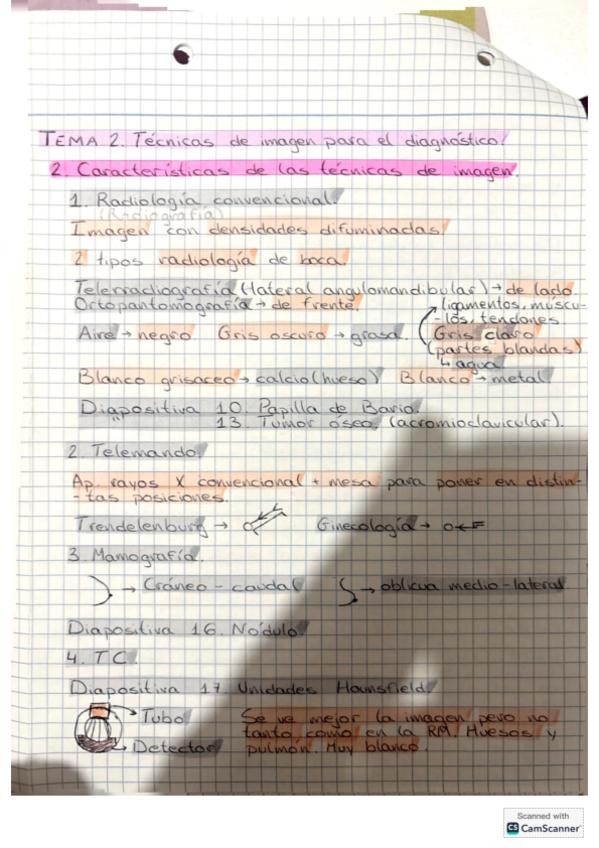 TEMA 2. Técnicas de imagen para el diagnóstico.
2. Características de las técnicas de imagen.
1. Radiología convencional.
(Radiografía)
Imagen con densidades difuminadas.
2 tipos radiología de boca.
Telerradiografía (lateral angulomandibular) → de lado.
Ortopantomografía → de frente.
ligamentos, múscu-
-los, tendones.
Aire → negro Gris oscuro → grasa. Gris claro
(partes blandas)
↳ agua.
Blanco grisaceo → calcio (hueso) Blanco → metal.
Diapositiva 10. Papilla de Bario.
" 13. Tumor óseo. (acromioclavicular).
2. Telemando.
Ap. rayos X convencional + mesa para poner en distin-
-tas posiciones.
Trendelenburg → Ginecología →
3. Mamografía.
→ Cráneo - caudal → oblicua medio-lateral
Diapositiva 16. Nódulo.
4. TC.
Diapositiva 17. Unidades Hounsfield.
→ Tubo
→ Detector
Se ve mejor la imagen pero no
tanto como en la RM. Huesos y
pulmón. Muy blanco.
Scanned with
CS CamScanner